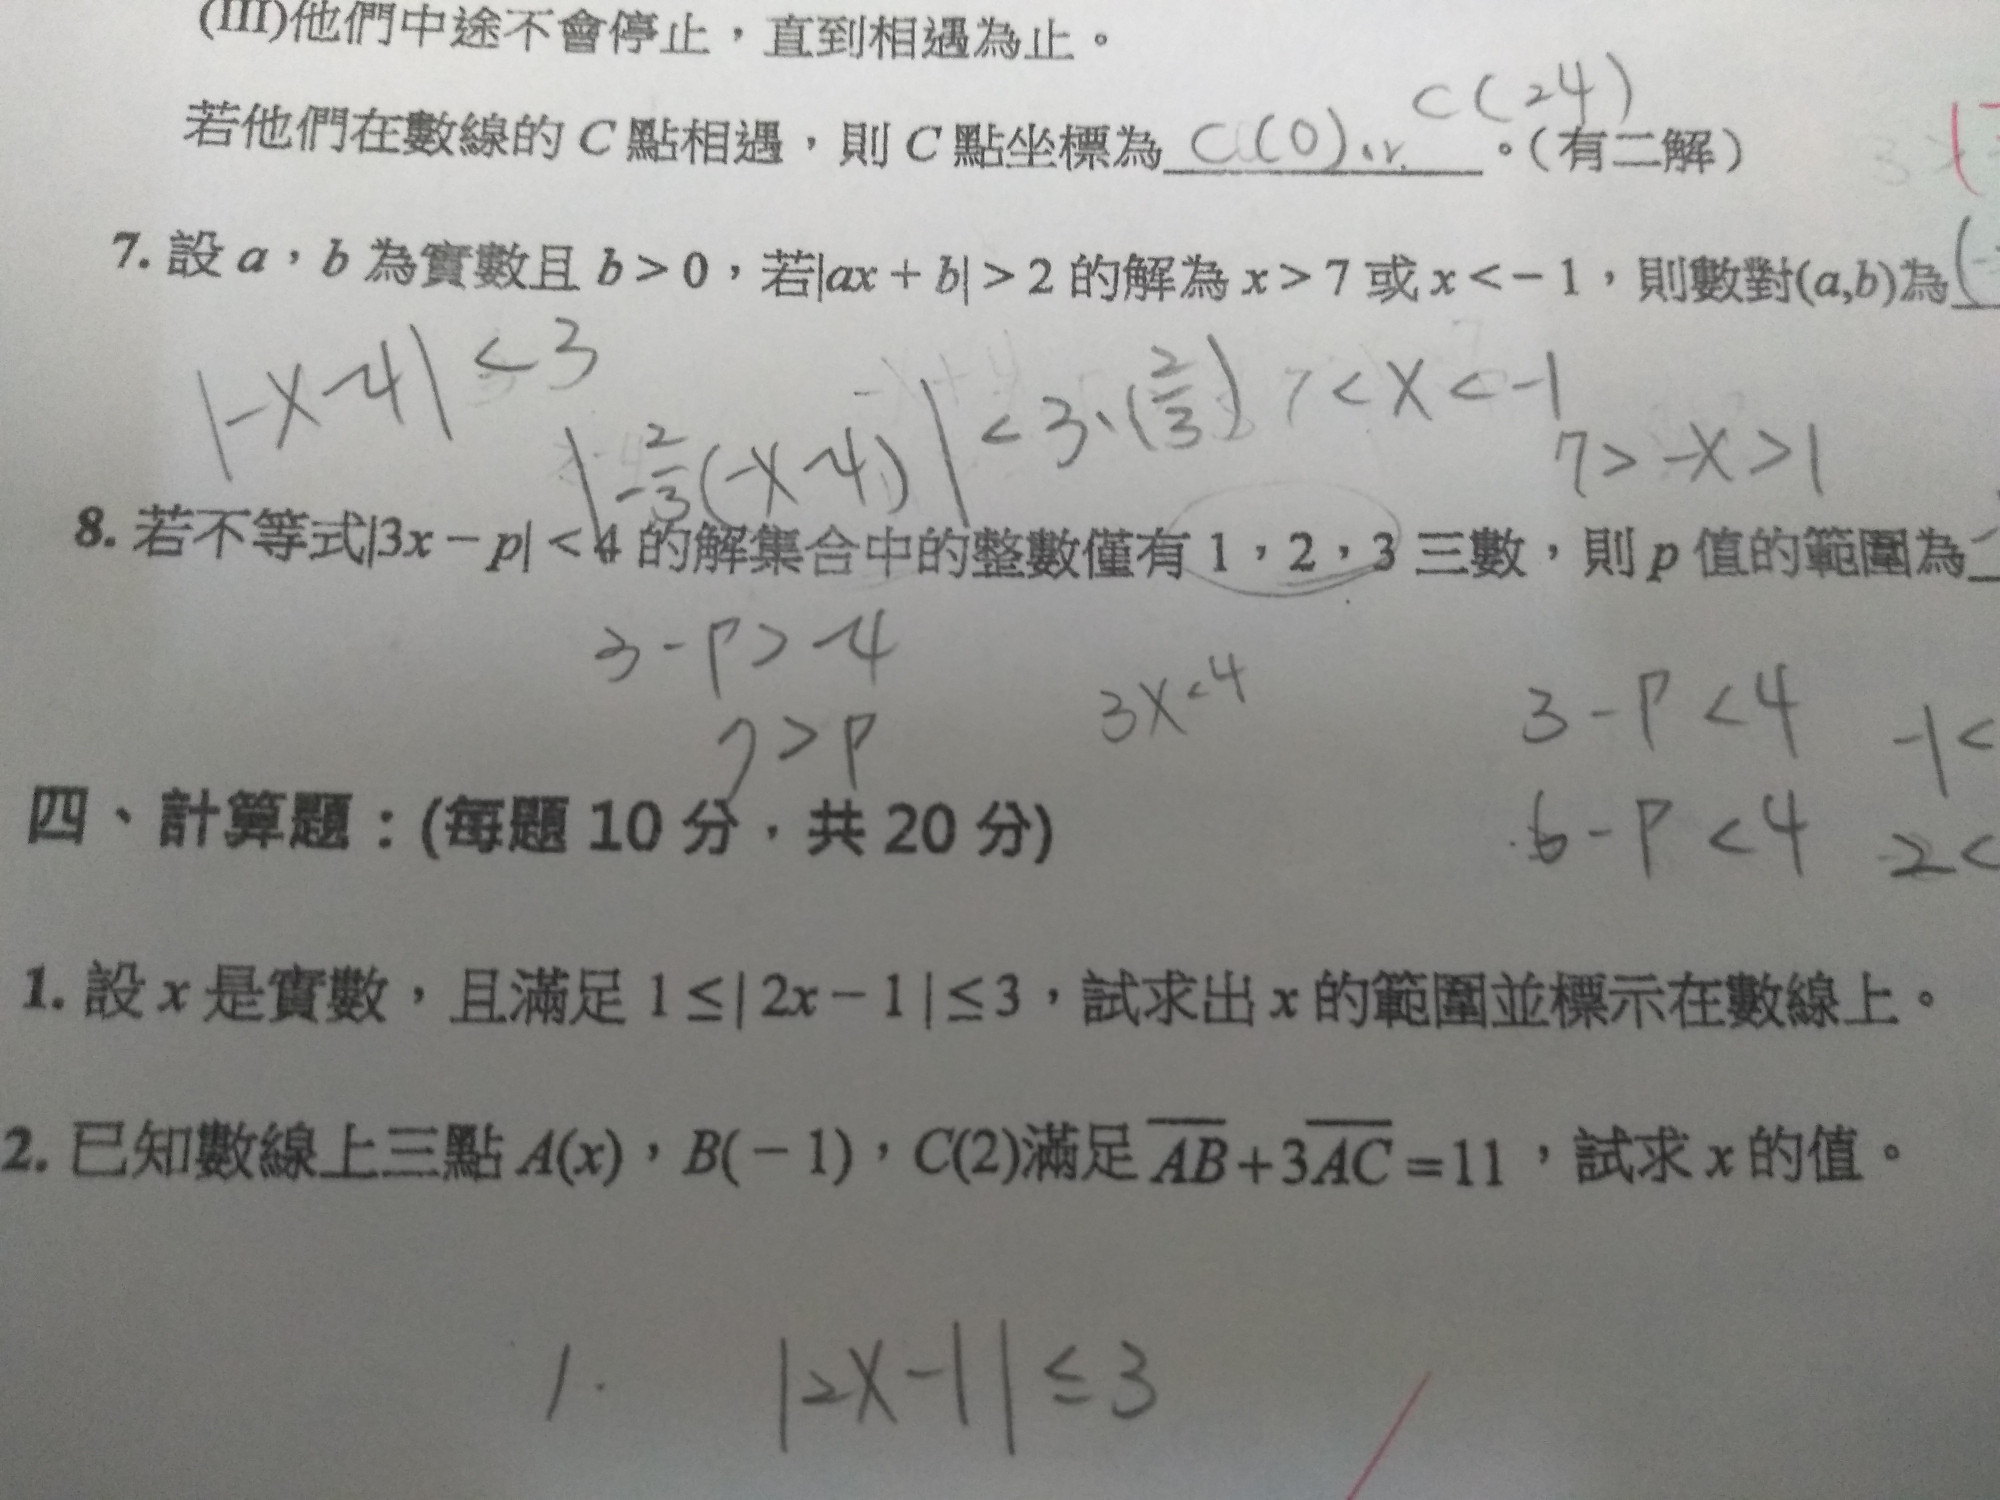 (III)他們中途不會停止，直到相遇為止。
C(24)
若他們在數線的 C 點相遇，則 C 點坐標為 C(0) or 。(有二解)
7. 設 a，b 為實數且 b > 0，若|ax + b| > 2 的解為 x > 7 或 x < − 1，則數對(a,b)為
|-x-4| < 3
|-2/3(-x-4)| < 3·(2/3) 7 < x < -1
7 > -x > 1
8. 若不等式|3x − p| < 4 的解集合中的整數僅有 1，2，3 三數，則 p 值的範圍為
3-p > -4
3x < 4
3-p < 4 -1 <
7 > p
6-p < 4 2 <
四、計算題：(每題 10 分，共 20 分)
1. 設 x 是實數，且滿足 1 ≤ | 2x − 1 | ≤ 3，試求出 x 的範圍並標示在數線上。
2. 已知數線上三點 A(x)，B(− 1)，C(2)滿足 AB + 3AC = 11，試求 x 的值。
1. |2x-1| ≤ 3